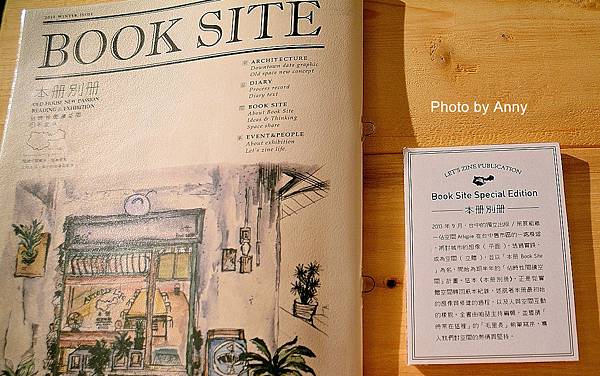 2013 WINTER ISSUE
BOOK SITE
本冊別冊
OLD HOUSE NEW PASSION
READING & EXHIBITION
ARCHITECTURE
Downtown data graphic
Old space new concept
DIARY
Process record
Diary text
BOOK SITE
About Book Site
Ideas & Thinking
Space share
EVENT&PEOPLE
About exhibition
Let's zine life.
Photo by Anny
LET'S ZINE PUBLICATION
Book Site Special Edition
本冊別冊
2013 年 9 月，台中的獨立出版
在台中舊市區的一處廢墟，
將對城市的想像（平面），透過實踐，
成為空間（立體），並以「本冊 Book Site
」為名，開始為期半年的「佔時性閱讀空
間」計畫。這本《本冊別冊》，正是從實
體空間轉回紙本紀錄，述說著本冊最初始
的想像與修建的過程，以及人與空間互動
的樣貌。
入我們對空間的熱情與堅持。